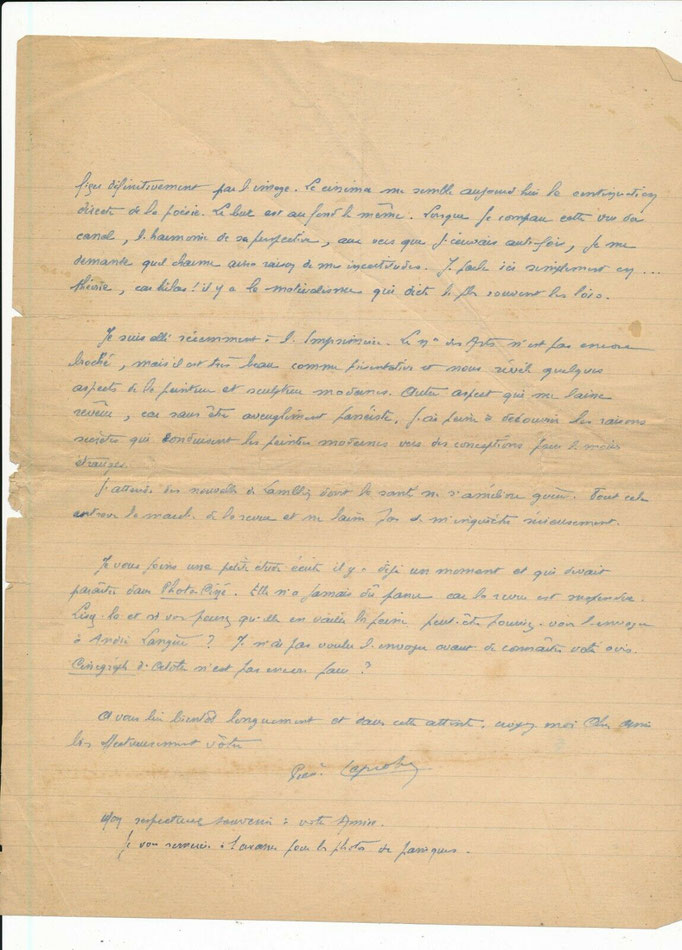 fixés définitivement par l'image. Le cinéma me semble aujourd'hui la continuation
directe de la poésie. Le but est au fond le même. Lorsque je compare cette vue du
canal, l'harmonie de sa perspective, aux vers que j'écrivais autrefois, je me
demande quel charme aura raison de mes incertitudes. Je parle ici simplement en ...
théorie, car hélas! il y a le matérialisme qui dicte le plus souvent les lois.
Je suis allé récemment à l'Imprimerie. Le n° des Arts n'est pas encore
broché, mais il est très beau comme présentation et nous révèle quelques
aspects de la peinture et sculpture modernes. Autre aspect qui me laisse
rêveur, car sans être aveuglément passéiste, j'ai peine à découvrir les raisons
secrètes qui conduisent les peintres modernes vers des conceptions pour le moins
étranges.
J'attends des nouvelles de dont la santé ne s'améliore guère. Tout cela
entrave la marche de la revue et ne laisse pas de m'inquiéter sérieusement.
Je vous joins une petite étude écrite il y a déjà un moment et qui devait
paraître dans Photo-Ciné. Elle n'a jamais dû paraître car la revue est suspendue.
Lisez-la et si vous pensez qu'elle en vaille la peine peut-être pourriez-vous l'envoyer
à André ? Je n'ai pas voulu l'envoyer avant de connaître votre avis.
d'Octobre n'est pas encore paru ?
A vous lire bientôt longuement et dans cette attente, croyez moi Cher Ami
bien affectueusement vôtre
Mon respectueux souvenir à votre Amie.
Je vous remercie à l'avance pour les photos de